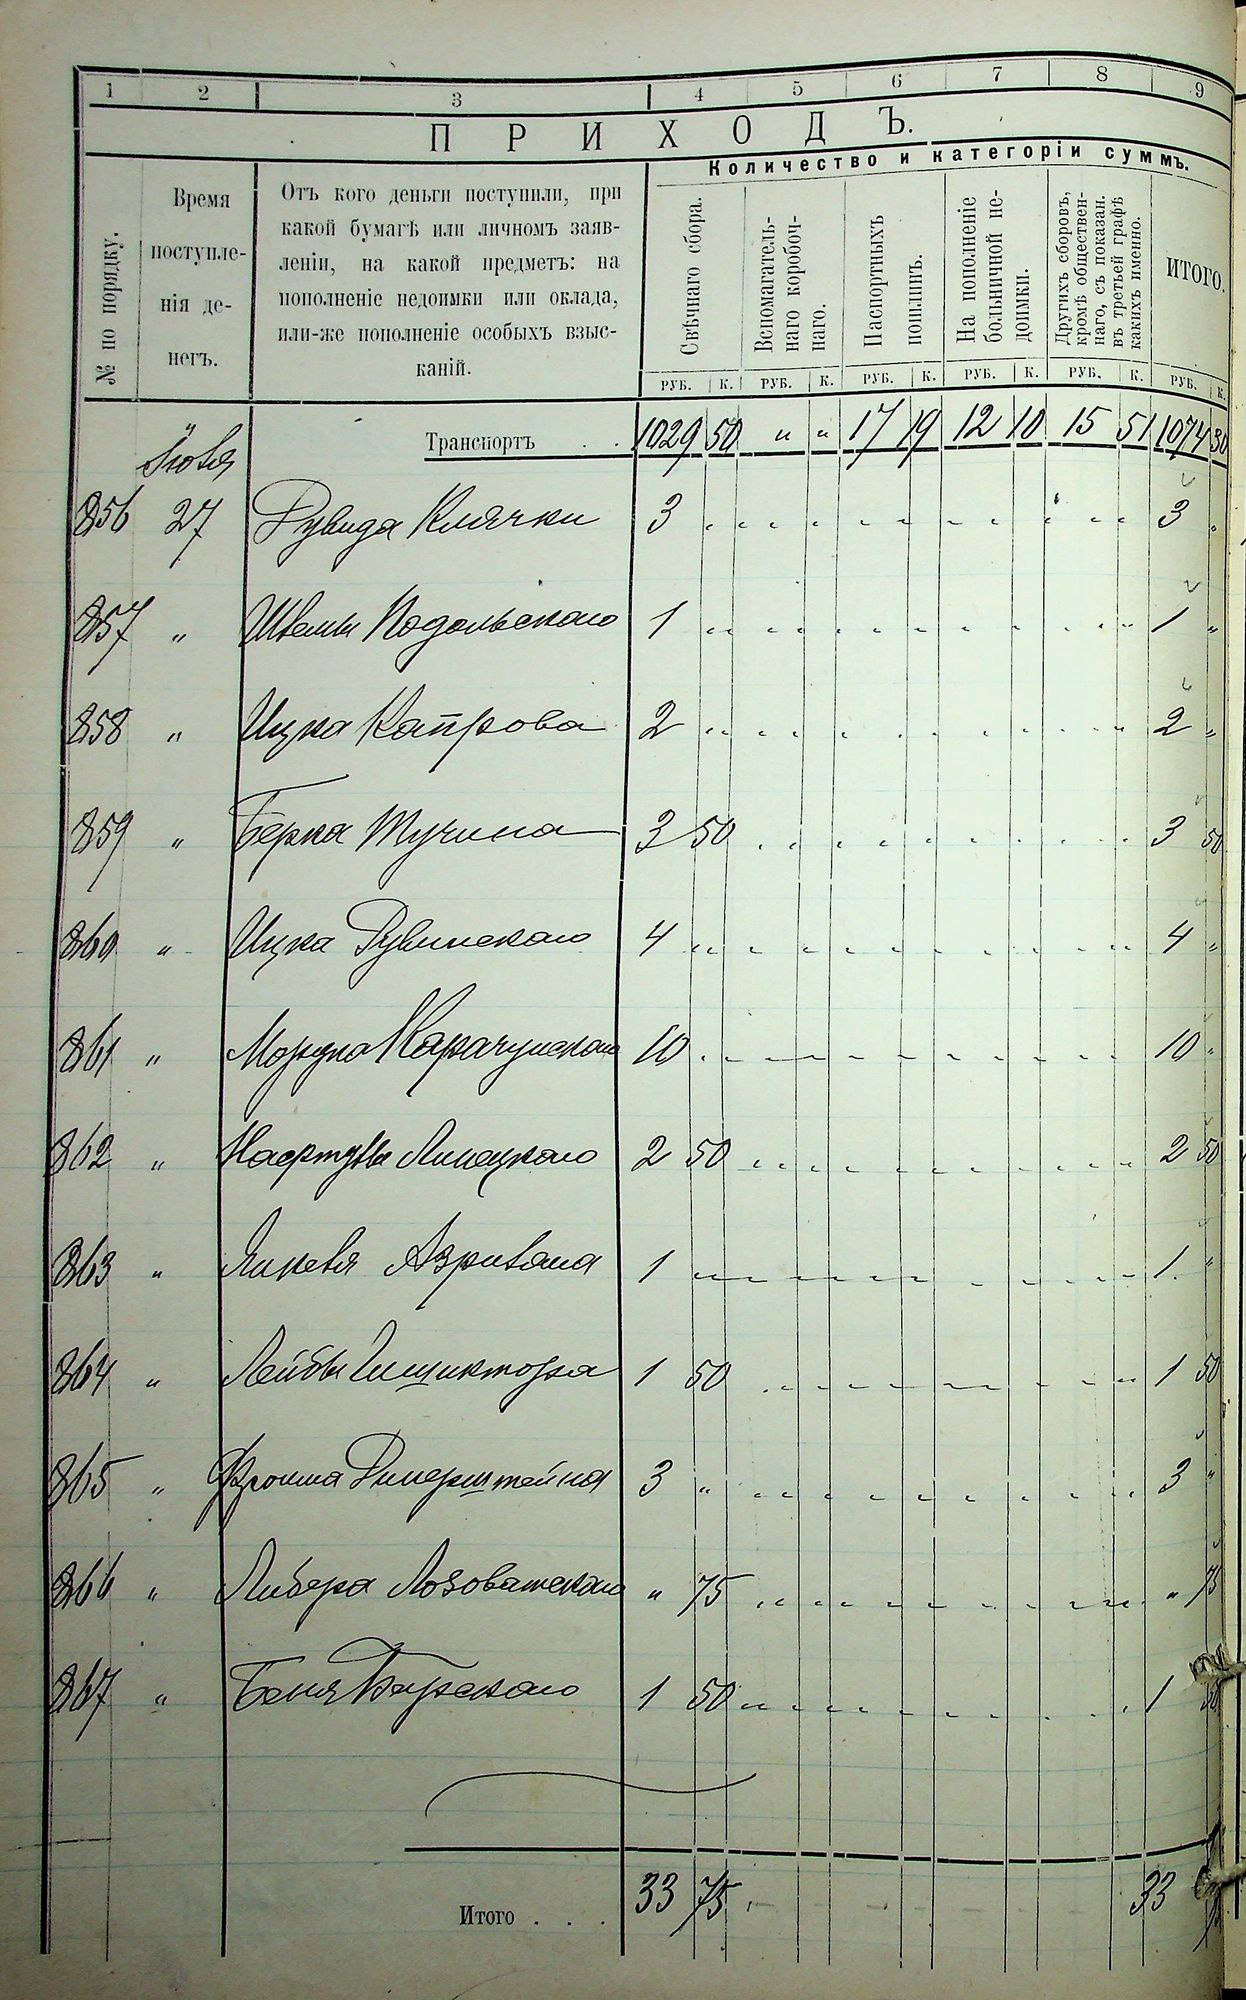 1 2 3 4 5 6 7 8 9
ПРИХОДЪ.
Количество и категоріи суммъ.
№ по порядку.
Время поступле-
нія де-
негъ.
Отъ кого деньги поступили, при
какой бумагѣ или личномъ заяв-
леніи, на какой предметъ: на
пополненіе недоимки или оклада,
или-же пополненіе особыхъ взыс-
каній.
Свѣчнаго сбора.
Вспомагатель-
наго коробоч-
наго.
Паспортныхъ
пошлинъ.
На пополненіе
больничной не-
доимки.
Другихъ сборовъ,
кромѣ обществен-
наго, съ показан.
въ третьей графѣ
какихъ именно.
ИТОГО.
РУБ. К. РУБ. К. РУБ. К. РУБ. К. РУБ. К. РУБ. К.
Транспортъ . . 1029 50 " " 17 19 12 10 15 51 1074 30
Іюля
856 27 Рувида Клячки 3 3 "
857 " Подольскаго 1 1 "
858 " Ицка Капрова 2 2 "
859 " Берка Тучина 3 50 3 50
860 " Ицка Рувинскаго 4 4 "
861 " Мордка Карачунскаго 10 10 "
862 " Липецкаго 2 50 2 50
863 " Янкеля 1 1 "
864 " Лейбы 1 50 1 50
865 " Фроима 3 " 3 "
866 " Либера Лозоватскаго " 75 " 75
867 " Беня Барскаго 1 50 1 50
Итого . . . 33 75 33 75